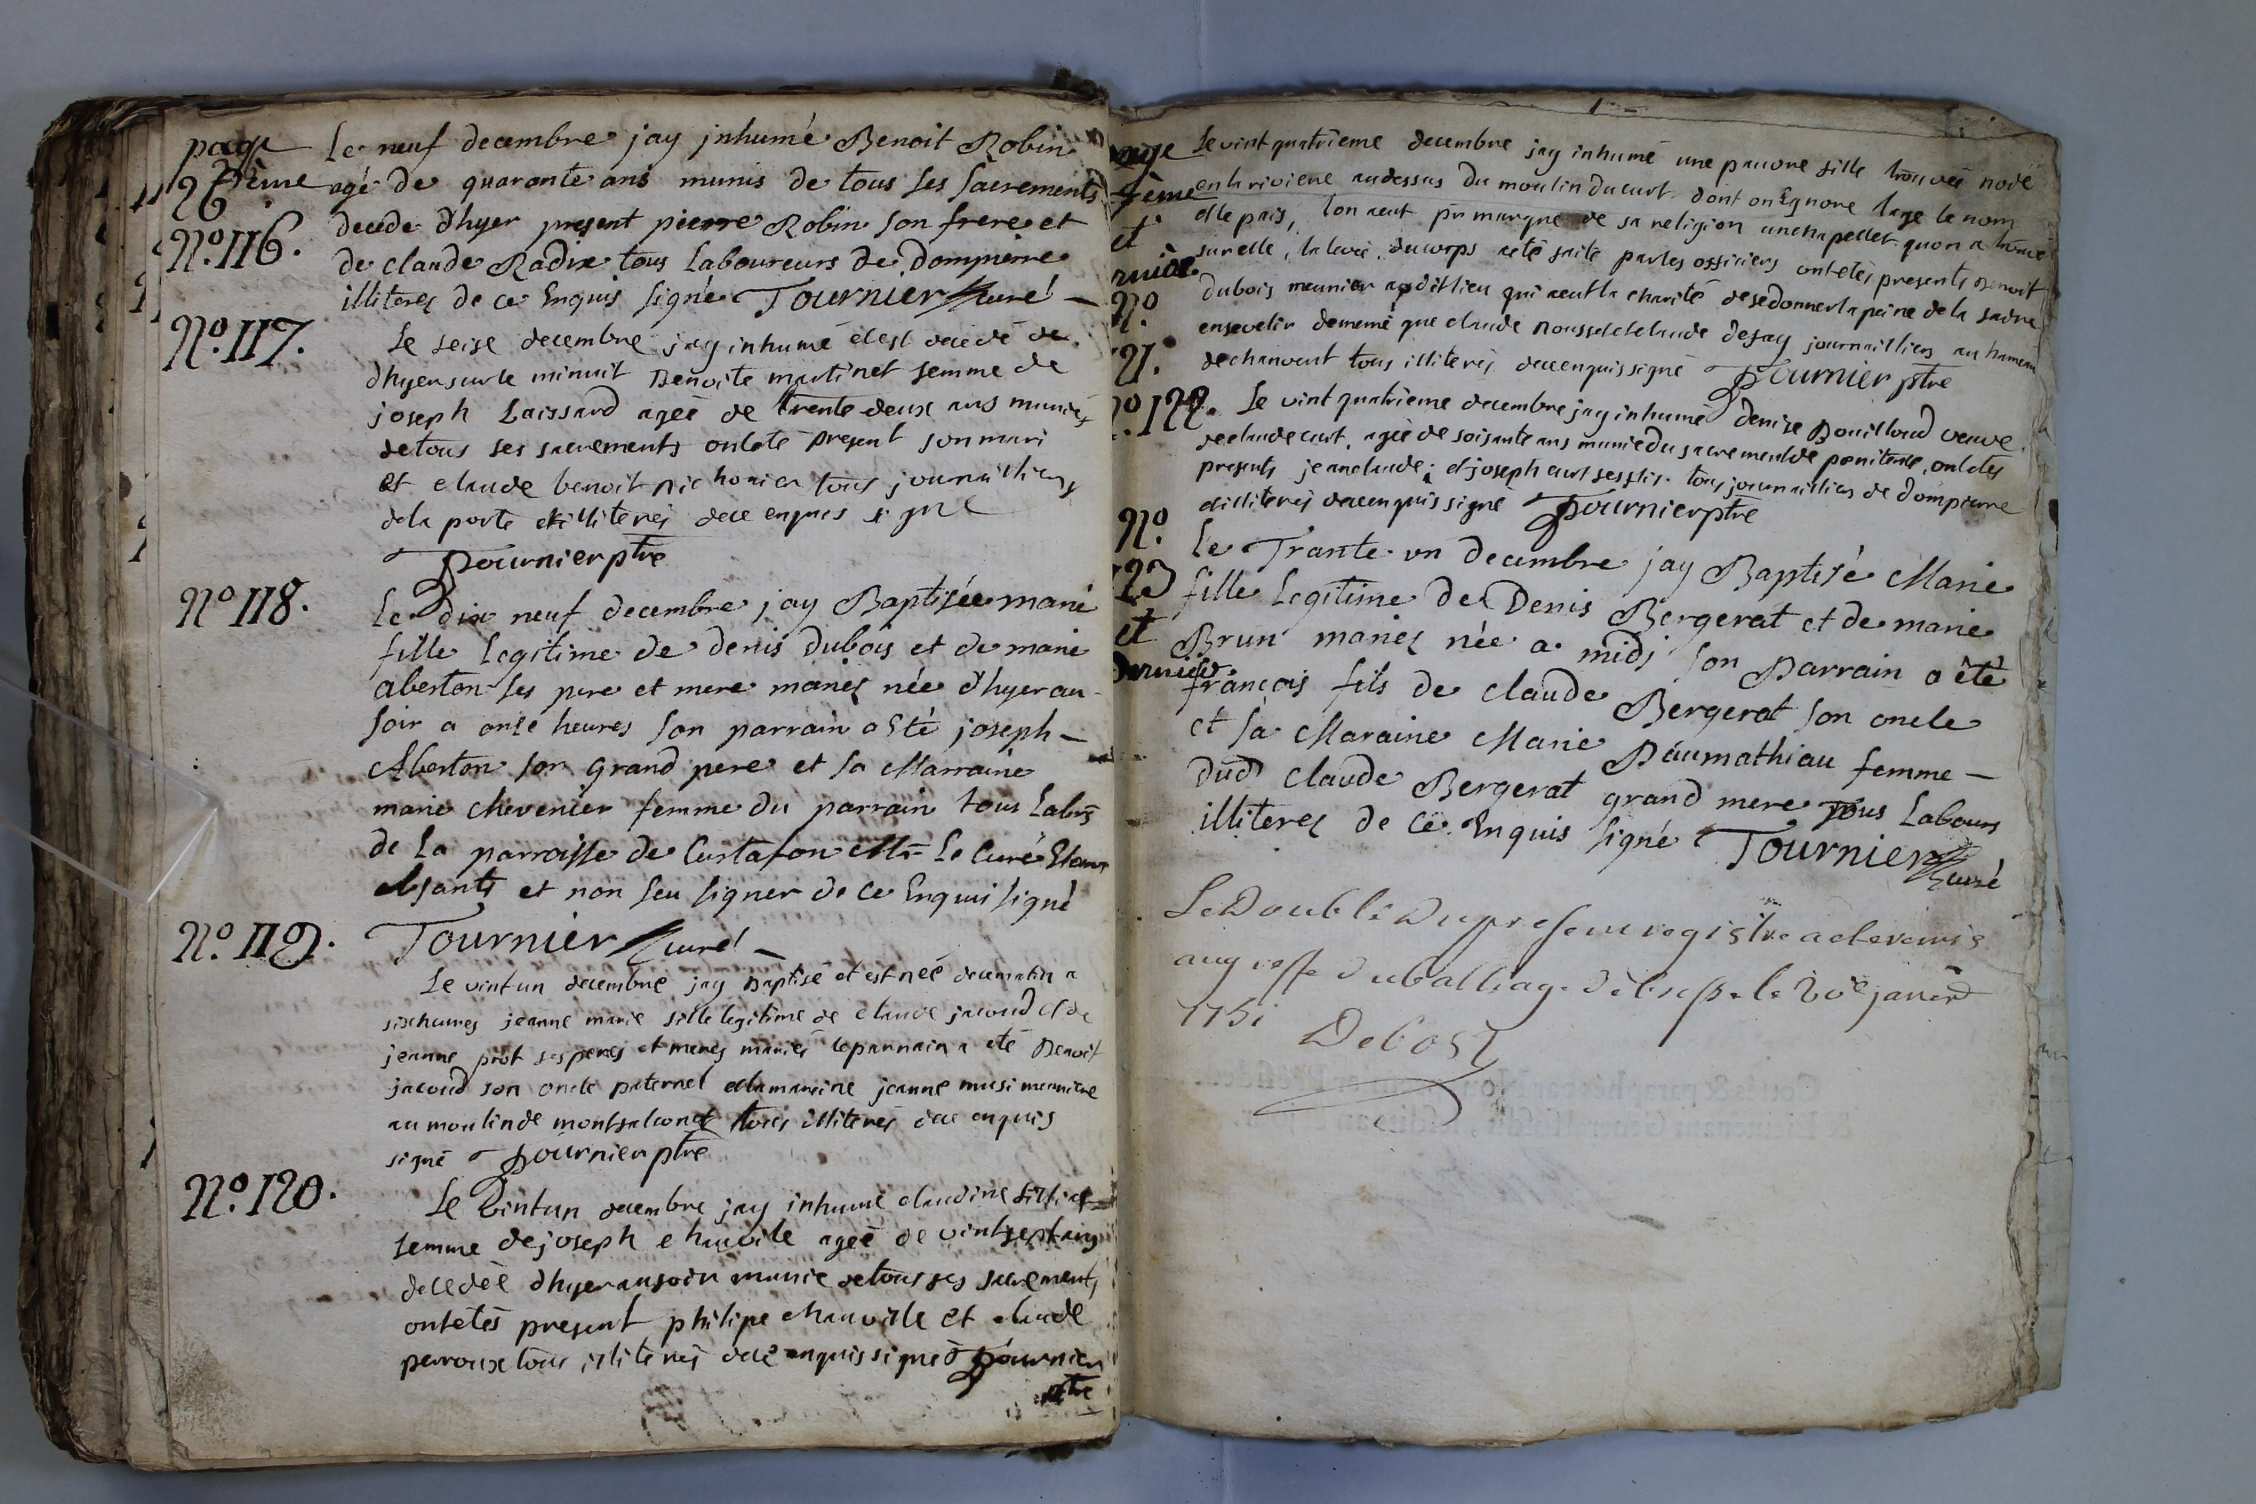 page
26ème
Nº.116.
Le neuf decembre jay jnhumé Benoit Robin
agé de quarante ans munis de tous ses sacrements
decede d'hyer present pierre Robin son frere et
de claude Radix tous Laboureurs de dompierre
illiteres de ce Enquis signé Tournier curé
Nº.117.
Le seise decembre jay inhumé et est decedé de
dhyer sur le minuit Benoite martinet femme de
joseph Laissard ageé de trente deux ans muniés
de tous ses sacrements ont eté present son mari
et claude benoit tous journailliers
dela porte et illiterés dece enquis signé
Tournier ptre
Nº 118.
Le dix neuf decembre jay Baptisée marie
fille legitime de denis dubois et de marie
aberton ses pere et mere mariés née d'hyer au
soir a onse heures son parrain a été joseph
Aberton son grand pere et sa Marraine
marie chevenier femme du parrain tous Labrs
de La parroisse de Curtafon Mr Le Curé Etant
absant et non seu signer de ce Enquis signé
Tournier curé
Nº.119.
Le vint un decembre jay Baptisé et est neé decematin a
six heures jeanne marie fille legitime de claude jacoud et de
jeanne prot ses peres et meres mariés le parrain a eté Benoit
jacoud son oncle paternel et la maraine jeanne musi meuniere
au moulin de montfalconet tous illiterés dece enquis
signé Tournier ptre
Nº.120.
Le vint un decembre jay inhumé claudine
femme de joseph chanvile ageé de vint sept ans
decedeé dhyer au soir munie de tous ses sacrements
ont etés present philipe chauville et claude
perroux tous illiterés dece enquis signé Tournier
ptre
page
et
Nº
121.
Le vint quatrieme decembre jay inhumé une pauvre fille trouveé noié
en la riviere audessus du moulin du curt dont on Egnore lage le nom
et le pais, lon aeut pr marque de sa religion un chapellet quon a trouvé
sur elle, la leveé du corps a eté faite par les officiers ont etés presents Benoit
Dubois meunier audit lieu qui aeut la charité de se donner la peine de la faire
ensevelir de meme que claude et claude defay journailliers au hameau
de chanvent tous illiterés dece enquis signé Tournier ptre
Nº.122.
Le vint quatrieme decembre jay inhumé denise Bouilloud veuve
de claude curt, ageé de soisante ans munie du sacrement de penitense, ont etés
presents jean claude, et joseph curt ses fils tous journailliers de dompierre
et illiterés dece enquis signé Tournier ptre
Nº
123
et
dernier
Le Trante un Decembre jay Baptisé Marie
fille Legitime de Denis Bergerat et de marie
Brun mariés née a midi son Parrain a été
françois fils de claude Bergerat son oncle
et sa Maraine Marie Paumathiau femme
dud claude Bergerat grand mere Tous Labours
illiteres de ce Enquis signé Tournier
curé
Le Double Du present registre a eté remis
au greffe du balliage de bresse le 20e janvier
1751
Debost